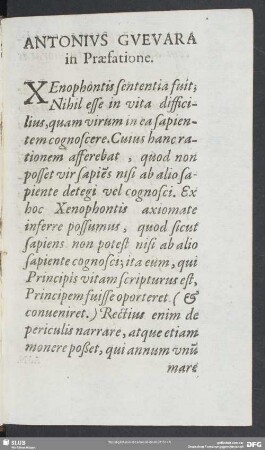 ANTONIVS GVEVARA
in Præfatione.
XEnophontis sententia fuit;
Nihil esse in vita diffici-
lius, quam virum in ea sapien-
tem cognoscere. Cuius hanc ra-
tionem afferebat, quod non
posset vir sapiẽs nisi ab alio sa-
piente detegi vel cognosci. Ex
hoc Xenophontis axiomate
inferre possumus, quod sicut
sapiens non potest nisi ab alio
sapiente cognosci; ita eum, qui
Principis vitam scripturus est,
Principem fuisse oporteret (&
conveniret.) Rectius enim de
periculis narrare, atque etiam
monere posset, qui annum vnũ
mare
SLUB
DFG